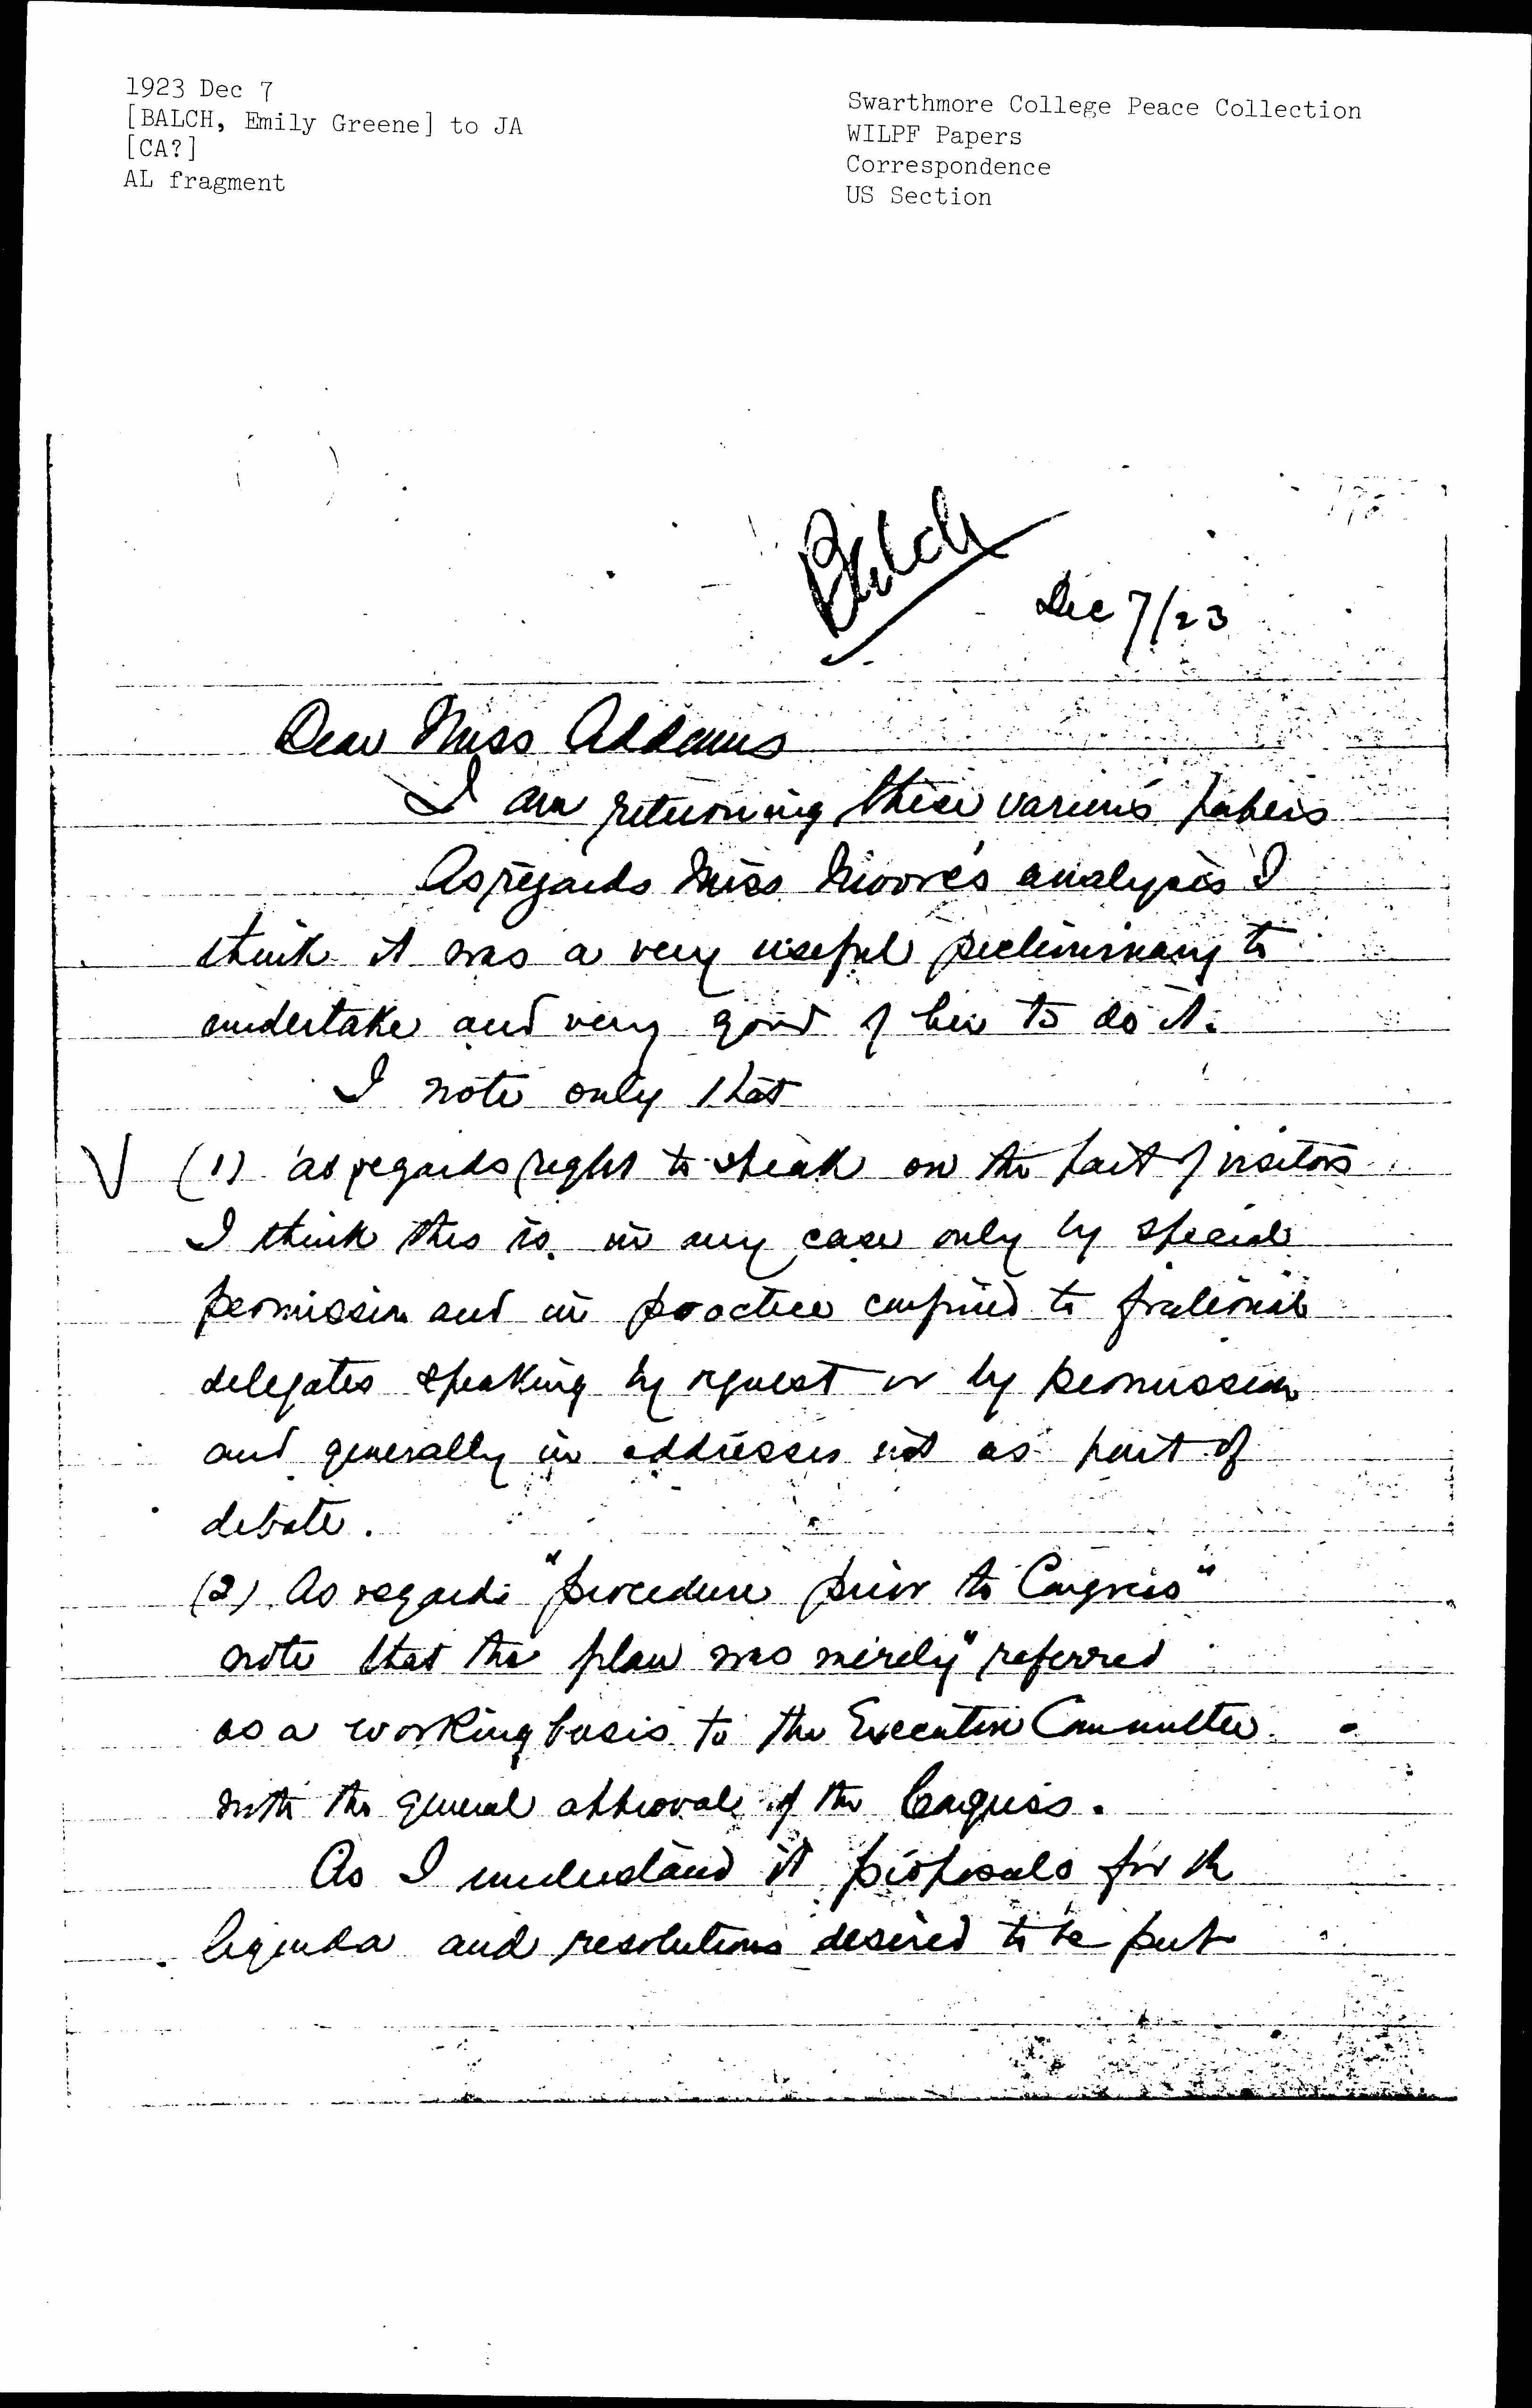 1923 Dec 7
[BALCH, Emily Greene] to JA
[CA?]
AL fragment
Swarthmore College Peace Collection
WILPF Papers
Correspondence
US Section
Balch
Dec 7/23
Dear Miss Addams
I am returning these various papers
As regards Miss Moore's analysis I
think it was a very useful preliminary to
undertake and very good of her to do it.
I note only that
V (1) as regards right to speak on the part of visitors
I think this is in any case only by special
permission and in practice confined to fraternal
delegates speaking by request or by permission
and generally in addresses not as part of
debate.
(2) As regards "procedure prior to Congress"
note that the plan was merely "referred
as a working basis to the Executive Committee
with the general approval of the Congress.
As I understand it proposals for the
Agenda and resolutions desired to be put